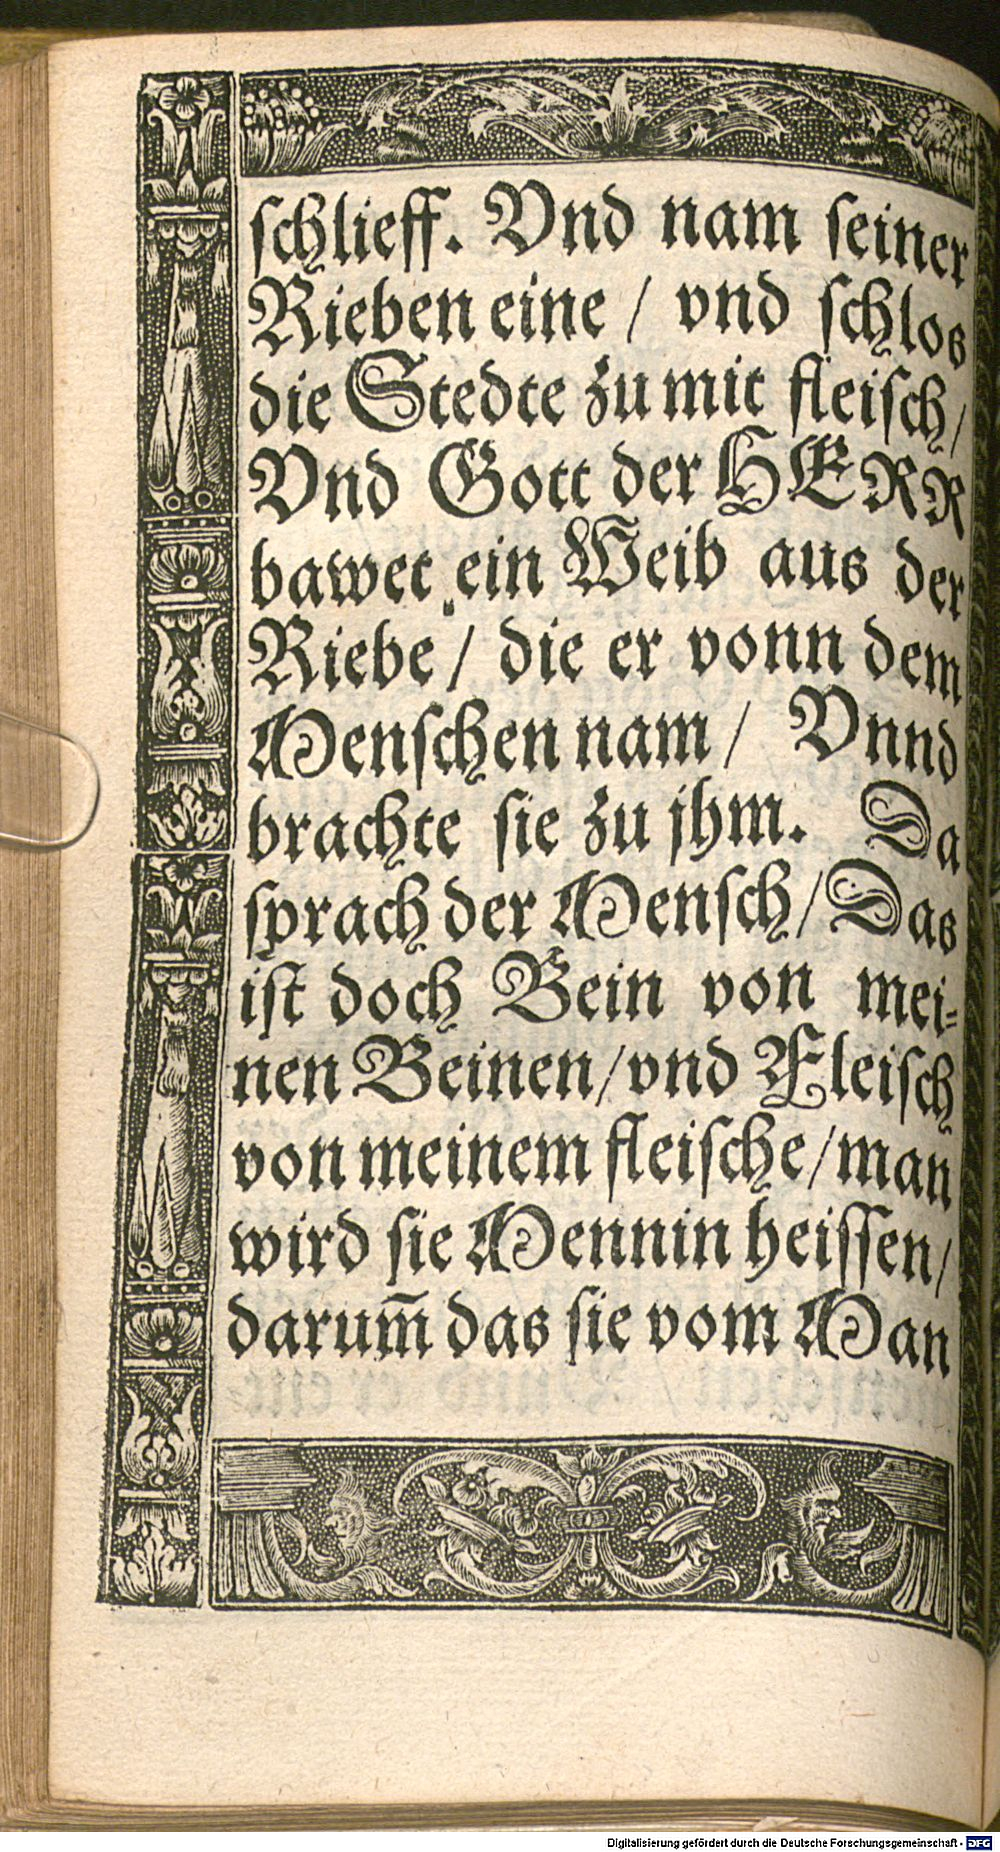 schlieff. Vnd nam seiner
Rieben eine / vnd schlos
die Stedte zu mit fleisch /
Vnd Gott der HERR
bawet ein Weib aus der
Riebe / die er vonn dem
Menschen nam / Vnnd
brachte sie zu jhm. Da
sprach der Mensch / Das
ist doch Bein von mei-
nen Beinen / vnd Fleisch
von meinem fleische / man
wird sie Mennin heissen /
darum̃ das sie vom Man
Digitalisierung gefördert durch die Deutsche Forschungsgemeinschaft - DFG